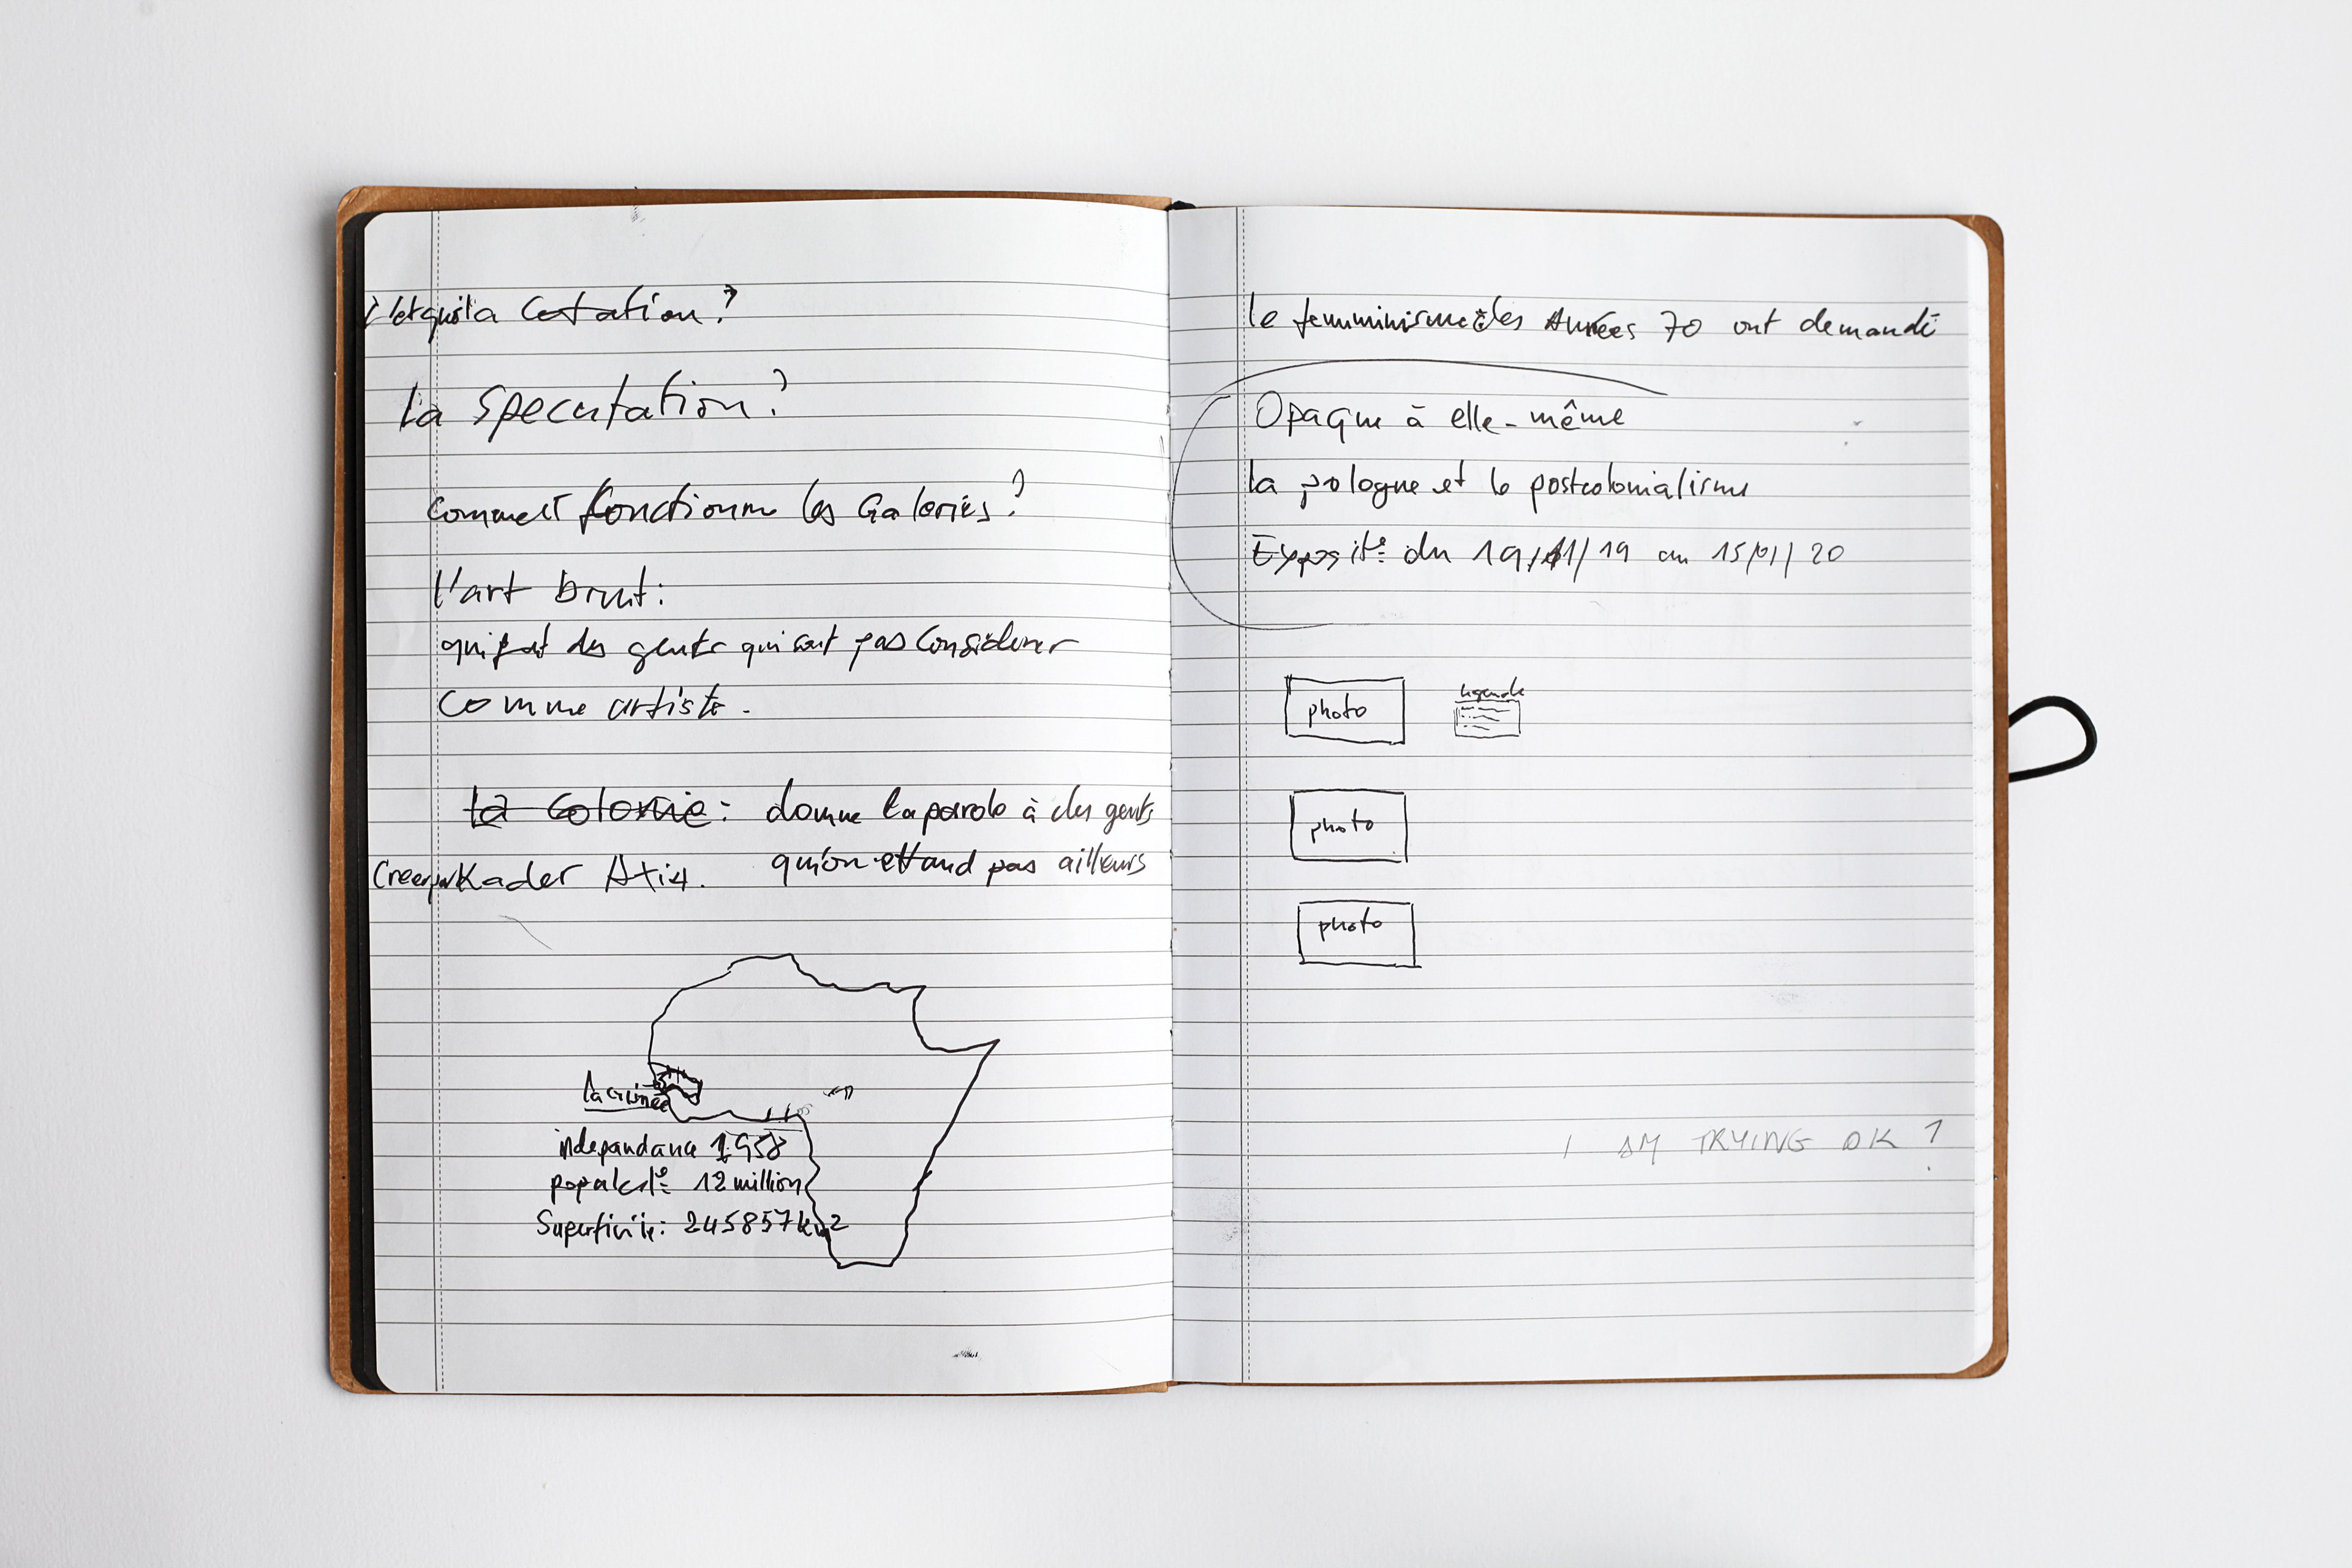 la Cotation?
La Specutation?
comment fonctionne les Galeries?
l'art brut:
qui font des gents qui sont pas Considerer
comme artiste.
La Colonie: donne la parole à des gents
qu'on ettand pas ailleurs
Creer par Kader Attia.
La Guinée
independance 1958
populat° 12 million
Superficie: 245857 km2
le femminisme des Années 70 ont demandé
Opaque à elle-même
la pologne et le postcolonialisme
Exposit° du 19/11/19 au 15/01/20
photo
legende
photo
photo
I AM TRYING OK ?